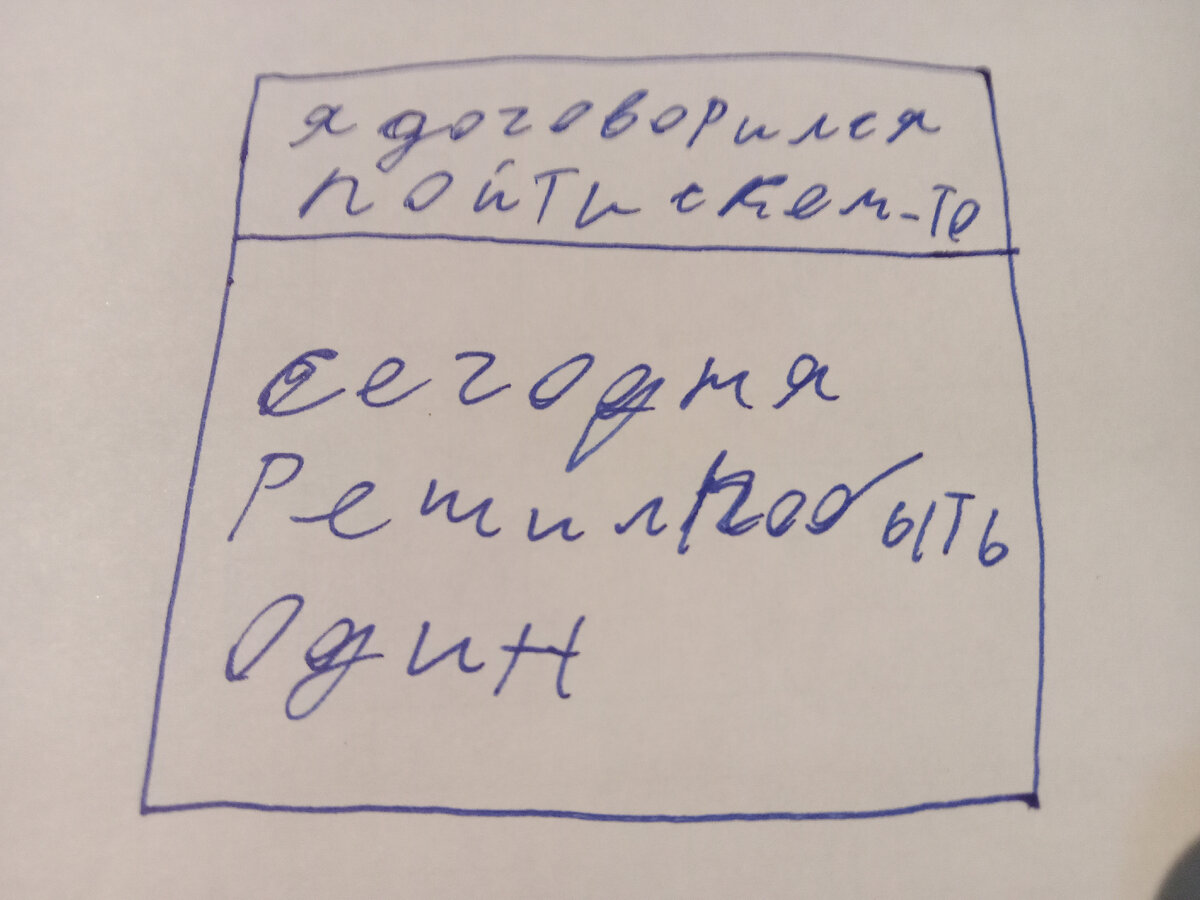 я договорился
пойти с кем-то
сегодня
Решил побыть
Один